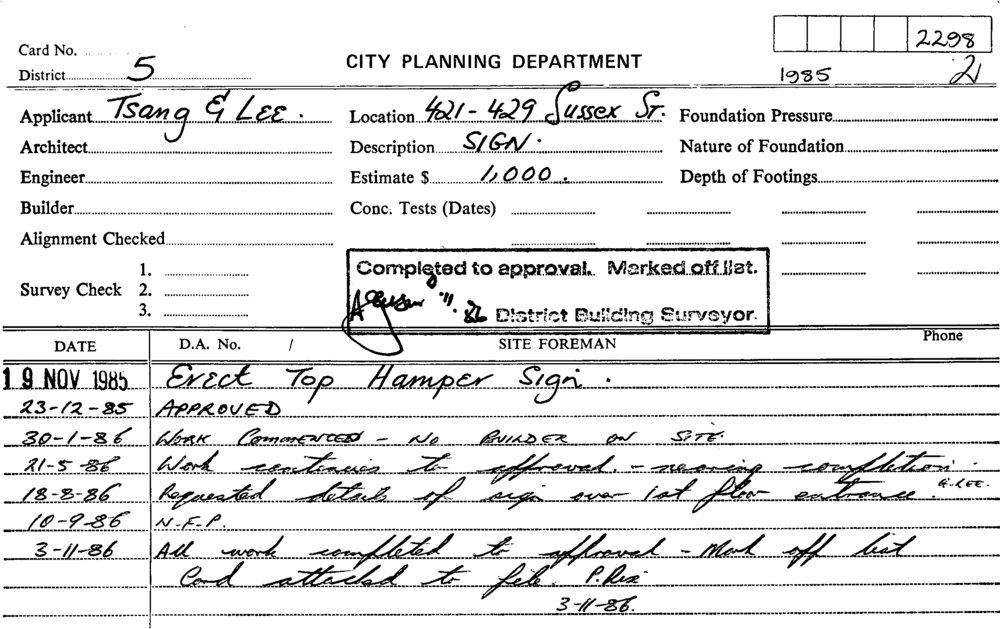 2298
Card No.
District 5
CITY PLANNING DEPARTMENT
1985 2
Applicant Tsang & LEE. Location 421-429 Sussex St. Foundation Pressure
Architect Description SIGN. Nature of Foundation
Engineer Estimate $ 1,000. Depth of Footings
Builder Conc. Tests (Dates)
Alignment Checked
Survey Check 1.
2.
3.
Completed to approval. Marked off list.
11. 86 District Building Surveyor.
DATE D.A. No. / SITE FOREMAN Phone
19 NOV 1985 Erect Top Hamper Sign.
23-12-85 APPROVED
30-1-86 Work Commenced - No BUILDER ON SITE.
21-5-86 Work continues to approval. - nearing completion.
18-8-86 Requested details of sign over 1st floor entrance. G-LEE.
10-9-86 N.F.P.
3-11-86 All work completed to approval - Mark off list
Card attached to file. P. Rix
3-11-86.